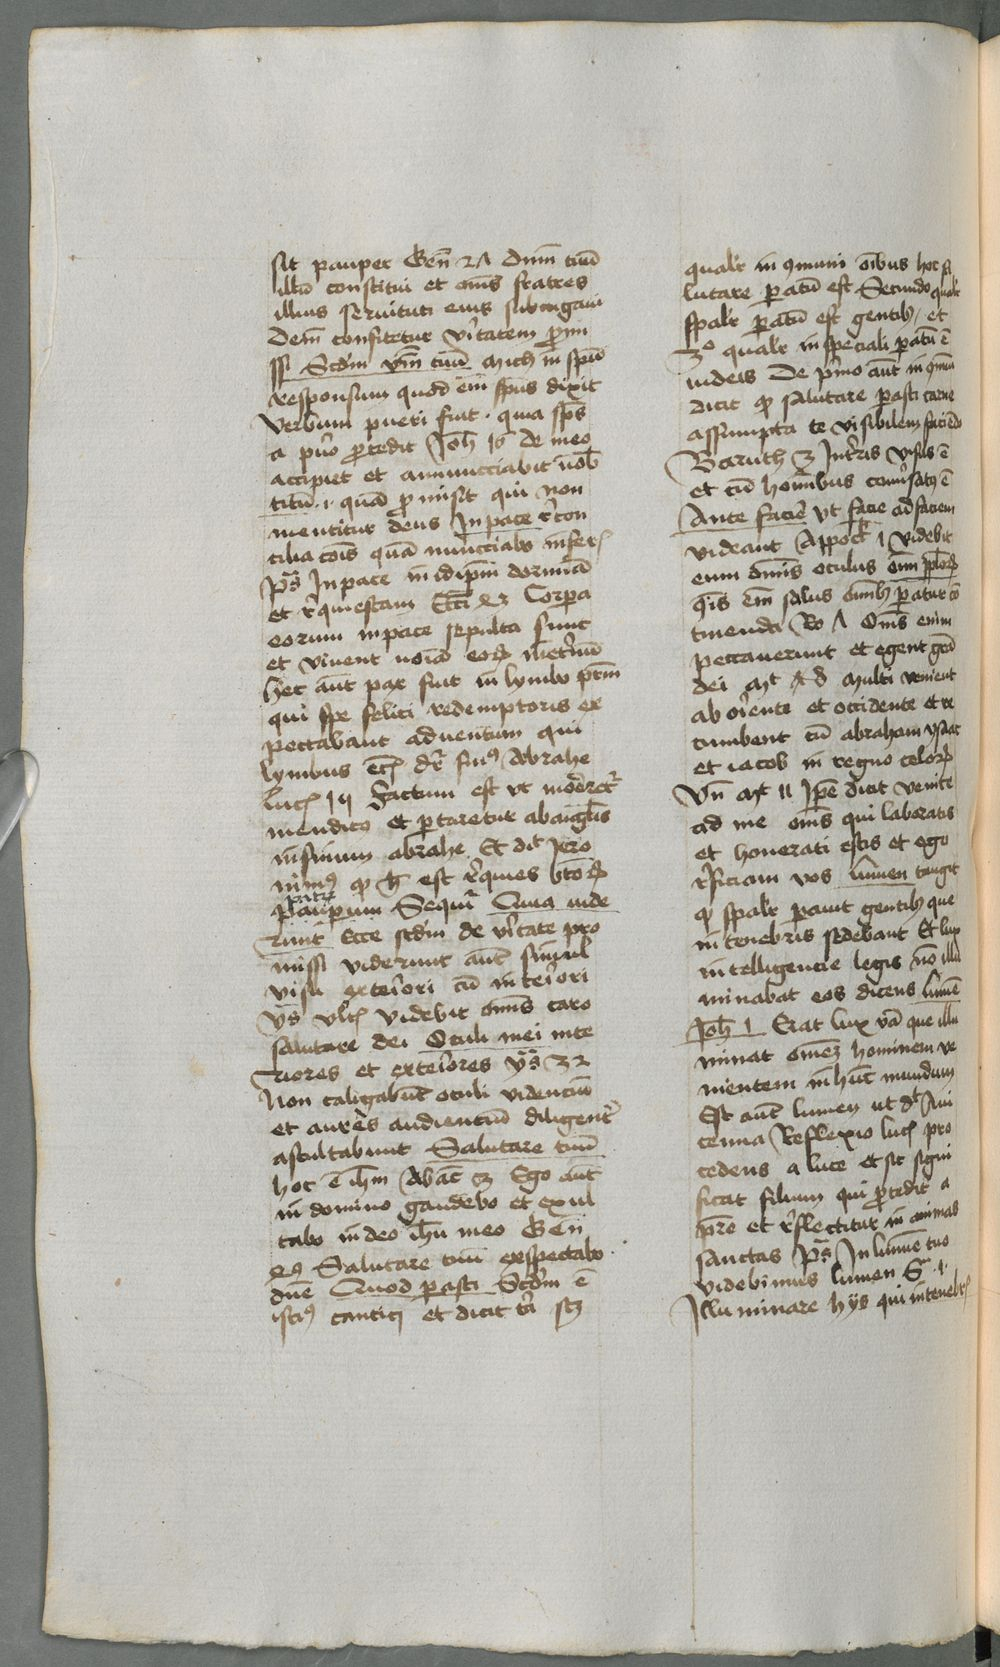 sit pauper Gen̄ 27 dn̄m tuū
illū constitui et om̄s fratres
illius seruituti eius subiugaui
Dein̄ confitetur v̓itatem promi
ssi Scd̄m v̓bū tuū mich in spū
responsum quod em̄ spūs dixit
verbum pueri fuit · quia spūs
a pu̓o procedit Joh̄ 16 de meo
accipiet et annuncciabit uob̄
titū · i · quā promisit qui non
mentitur deus In pace r̓con
cilia cōis quā nuncciabo infer̄
ps̄ In pace in idip̄m dormiā
et r̓quiescam Ecc̄i 44 Corpora
eorum in pace sepulta sunt
et viuent noīa eoꝝ in et̓nū
hec aūt pax fuit in lymbo pr̄m
qui spe felici redemptoris ex
pectabant aduentum qui
lymbus eciā dr̄ sinus Abrahe
Luc̄ 16 Factum est vt morer̄et̓
mendicꝰ et portaretur ab angl̄is
in sinum abrahe Et dic̄ Jero
nimꝰ ꝙ h̄ est r̓quies btōꝝ
pauperum Sequit̓ Quia vide
runt Ecce scd̄m de v̓itate pro
missi viderunt aūt simul
visu exteriori cū interiori
vn̄ luc̄ videbit om̄is caro
salutare dei Oculi mei inte
riores et exteriores ys̄ 32
Non caligabūt oculi videnciū
et aures audienciū diligent̓
ascultabunt Salutare tuū
hoc ē ih̄m Abac̄ 3 Ego aūt
in domino gaudebo et exul
tabo in deo ih̄u meo Gen̄
49 Salutare tuū exspectabo
dn̄e Quod parasti Scd̄m ē
istiꝰ cantici et dicit tria scz
qualit̓ in ꝯmuni oībus hoc sa
lutare paratū est Secundo qualit̓
spālit̓ paratū est gentibꝫ / et
3º qualit̓ in speciali paratū ē
iudeis De p̓mo aūt in ꝯmuni
dicit ꝙ salutare parasti carne
assumpta te visibilem faciēdo
Baruch 3 In t̓ris visus ē
et cū homībus conu̓satꝰ ē
Ante faciē vt facie ad faciem
videant Appoc̄ 1 videbit
eum om̄is oculus om̄m pplōꝝ
q̓s em̄ salus om̄ibꝫ paratur cō
tinendā Ro Om̄s enim
peccauerunt et egent gr̄a
dei Mt 8 Multi venient
ab oriente et occidente et re
cumbent cū abraham ysaac
et iacob in regno celoꝝ
vn̄ Mt 11 Ip̄e dicit venite
ad me om̄s qui laboratis
et honerati estis et ego
r̓ficiam vos Lumen tangit
ꝙ spālit̓ parauit gentibꝫ que
in tenebris sedebant Et lux
intelligencie legis nō illu
minabat eos dicens lumē
Joh̄ 1 Erat lux v̓a que illu
minat omnē hominem ve
nientem in hūc mundum
Est aūt lumen ut dt̄ Aui
cenna Reflexio luc̄ pro
cedens a luce et sic signi
ficat filium qui procedit a
pr̄e et r̓flectitur in animas
sanctas ps̄ In lumīe tuo
videbimus lumen S · i ·
Illuminare hijs qui in tenebr̄